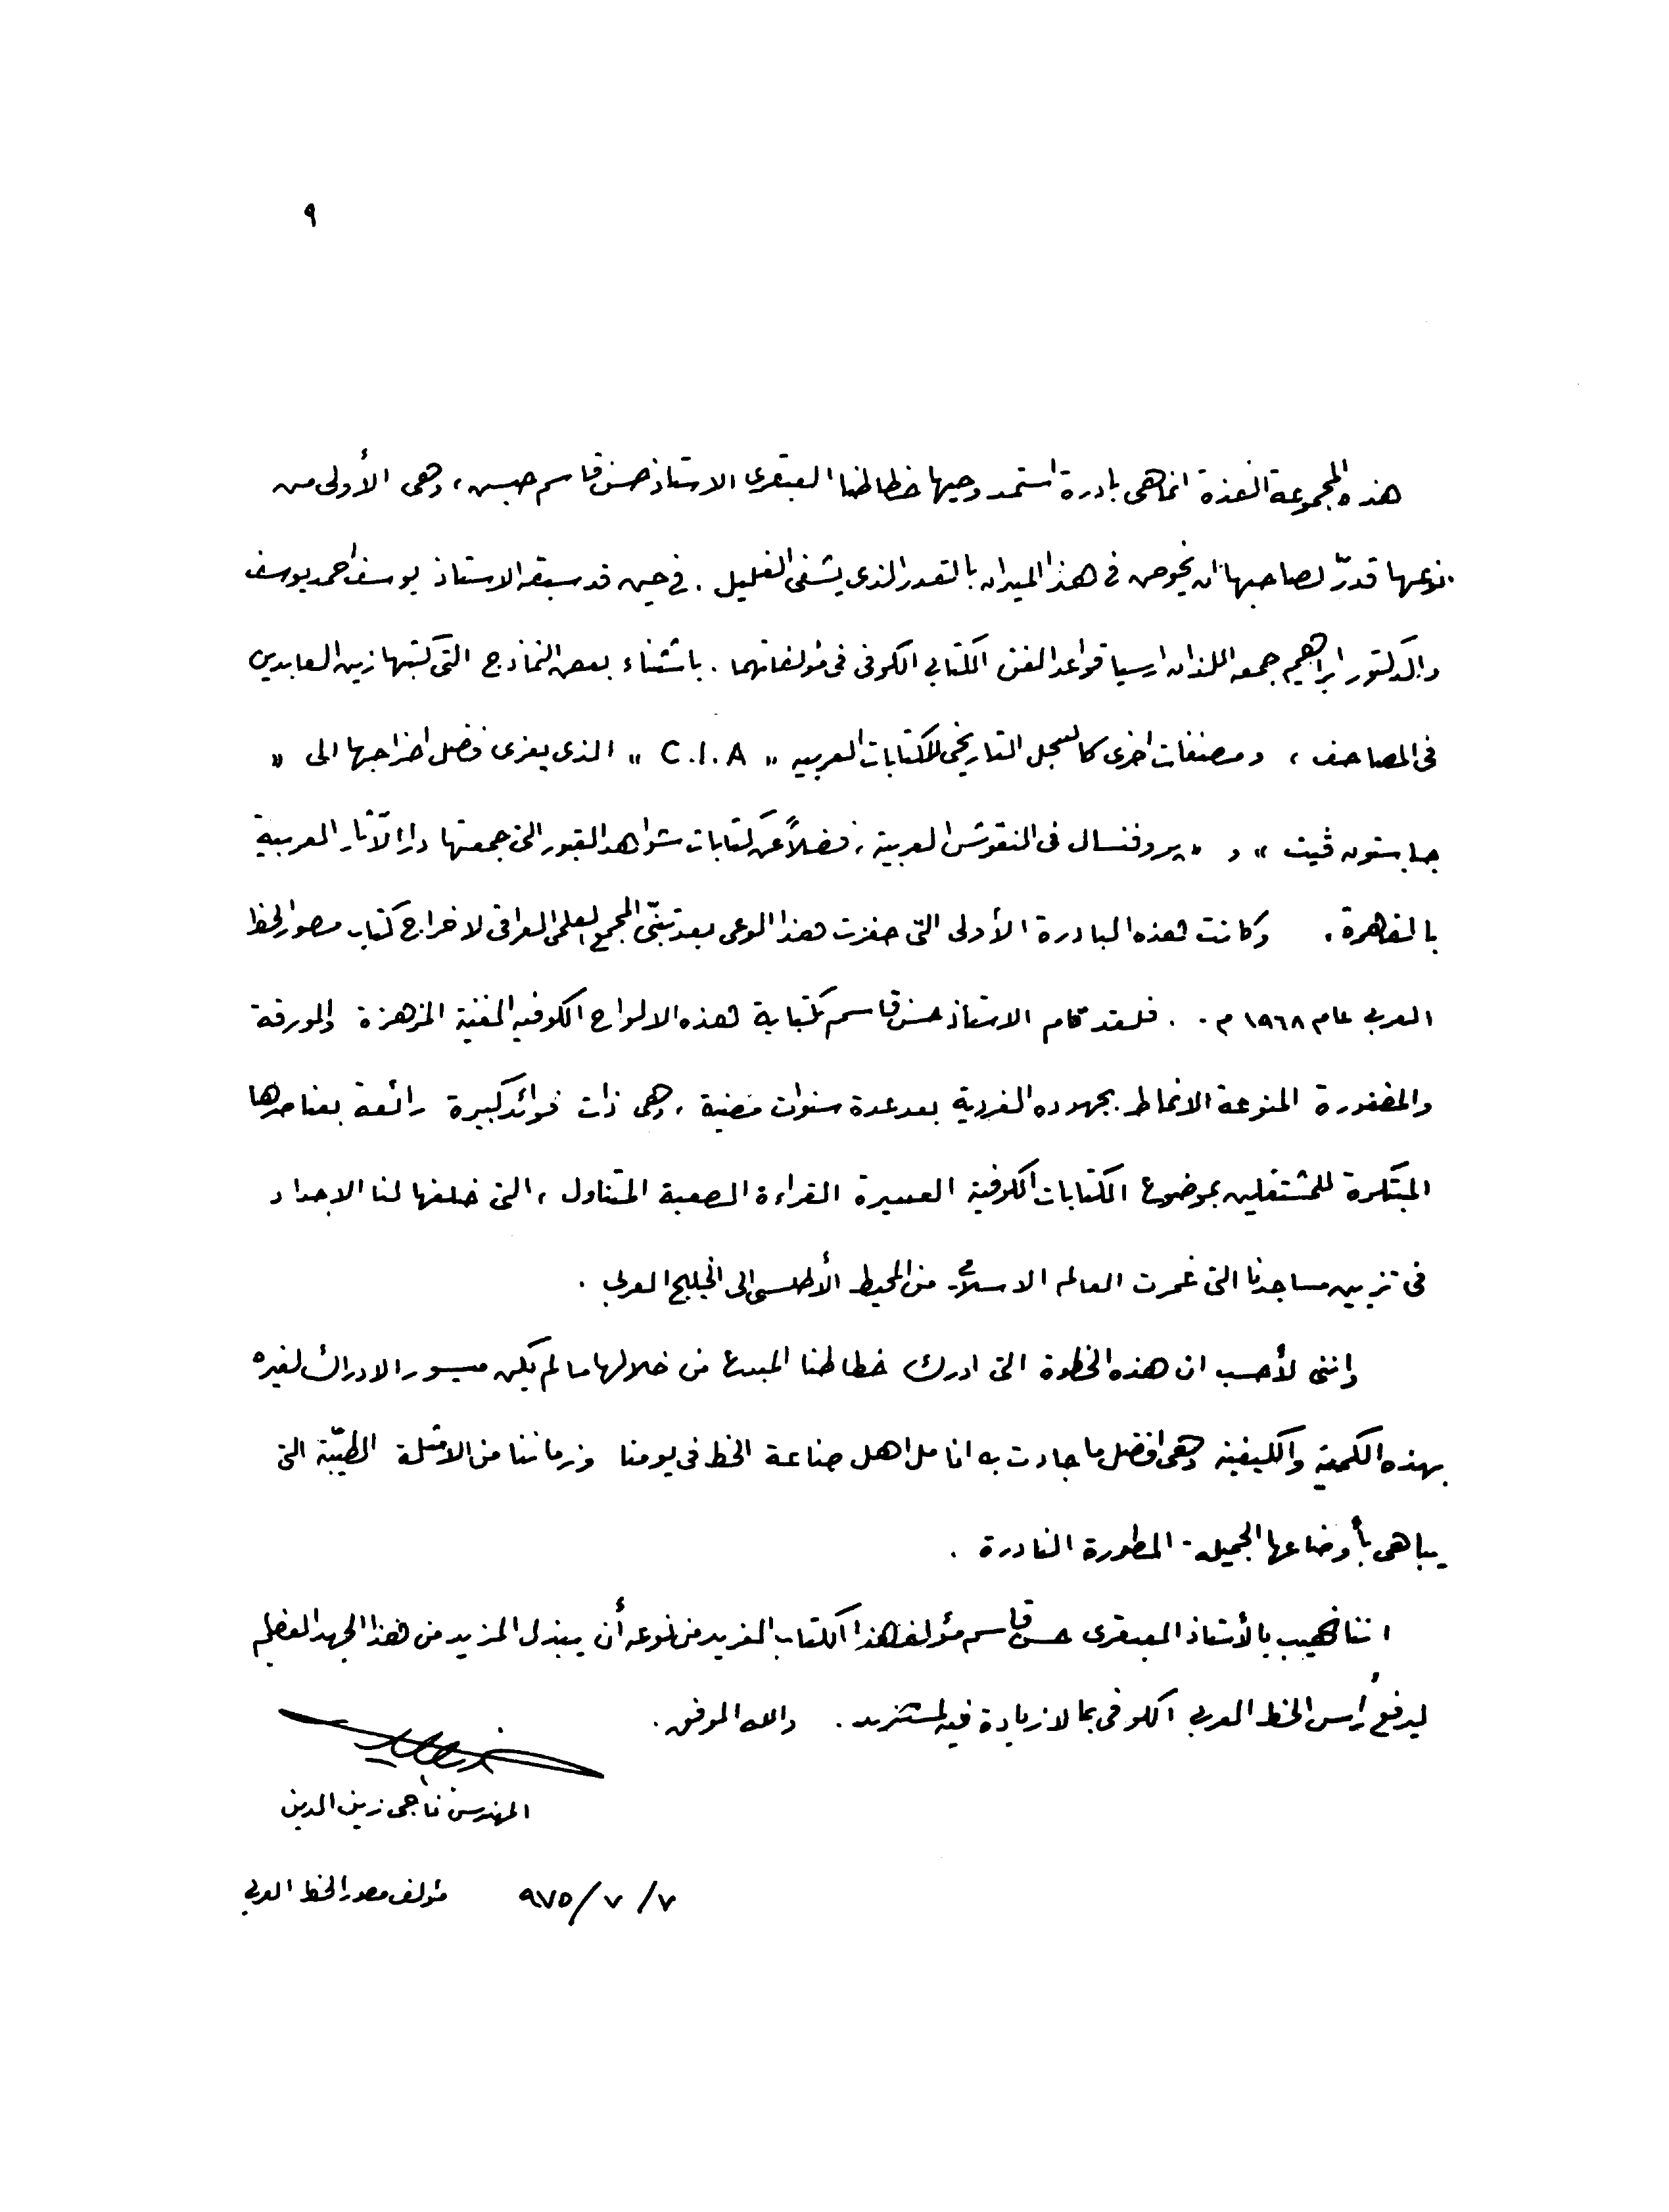 ٩
هذه المجموعة الفذة انما هي بادرة استمد وحيها خطاطنا العبقري الاستاذ حسن قاسم حبش ، وهي الأولى من
نوعها قدّر لصاحبها ان يخوض في هذا الميدان بالقدر الذي يشفي الغليل . في حين قد سبقه الاستاذ يوسف احمد يوسف
والدكتور ابراهيم جمعه اللذان ارسيا قواعد الفن الكتابي الكوفي في مؤلفاتهما . باستثناء بعض النماذج التي كتبها زين العابدين
في المصاحف ، ومصنفات اخرى كالسجل التاريخي للكتابات العربيه " C.I.A " الذي يعزى فضل اخراجها الى "
جاستون ڤيت " و " بروفنسال في النقوش العربية ، فضلاً عن كتابات شواهد القبور التي جمعتها دار الآثار العربية
بالقاهرة . وكانت هذه البادرة الأولى التي حفزت هذا الوعي بعد تبنّي المجمع العلمي العراقي لاخراج كتاب مصور الخط
العربي عام ١٩٦٨ م . فلقد قام الاستاذ حسن قاسم بكتابة هذه الالواح الكوفيه الفنية المزهرة والمورقة
والمضفورة المنوعة الانماط بجهوده الفردية بعد عدة سنوات مضنية ، وهي ذات فوائد كبيرة رائعة بعناصرها
المبتكرة للمشتغلين بموضوع الكتابات الكوفية العسيرة القراءة الصعبة المتناول ، التي خلفها لنا الاجداد
في تزيين مساجدنا التي غمرت العالم الاسلامي من المحيط الأطلسي الى الخليج العربي .
وانني لأحسب ان هذه الخطوة التي ادرك خطاطنا المبدع من خلالها ما لم يكن ميسور الادراك لغيره
بهذه الكمية والكيفية وهي افضل ما جادت به انامل اهل صناعة الخط في يومنا وزماننا من الامثلة الطيّبة التي
يباهى بأوضاعها الجميله - المطورة النادرة .
اننا نهيب بالأستاذ العبقري حسن قاسم مؤلف هذا الكتاب الفريد من نوعه أن يبذل المزيد من هذا الجهد العظيم
ليرفع رأس الخط العربي الكوفي بما لا زيادة فيه لمستزيد . والله الموفق .
المهندس ناجي زين الدين
٧ / ٧ / ٩٧٥ مؤلف مصور الخط العربي